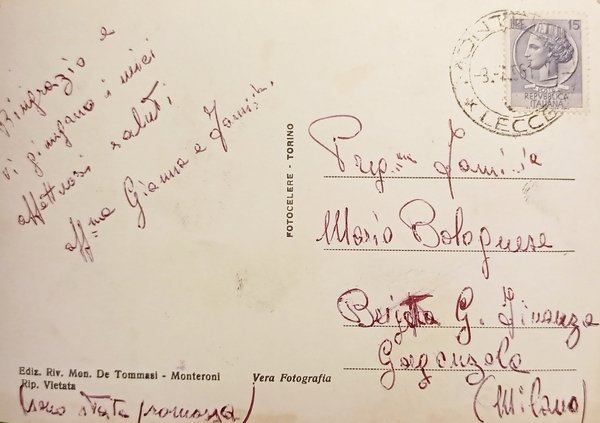 Ringrazio e
vi giungano i miei
affettuosi saluti
aff.ma Gianna e Famiglia
FOTOCELERE - TORINO
LECCE
15
REPUBBLICA
ITALIANA
Famiglia
Mario Bolognese
G. Finanza
Gorgonzola
(Milano)
Ediz. Riv. Mon. De Tommasi - Monteroni
Rip. Vietata
Vera Fotografia
(sono stata promossa)